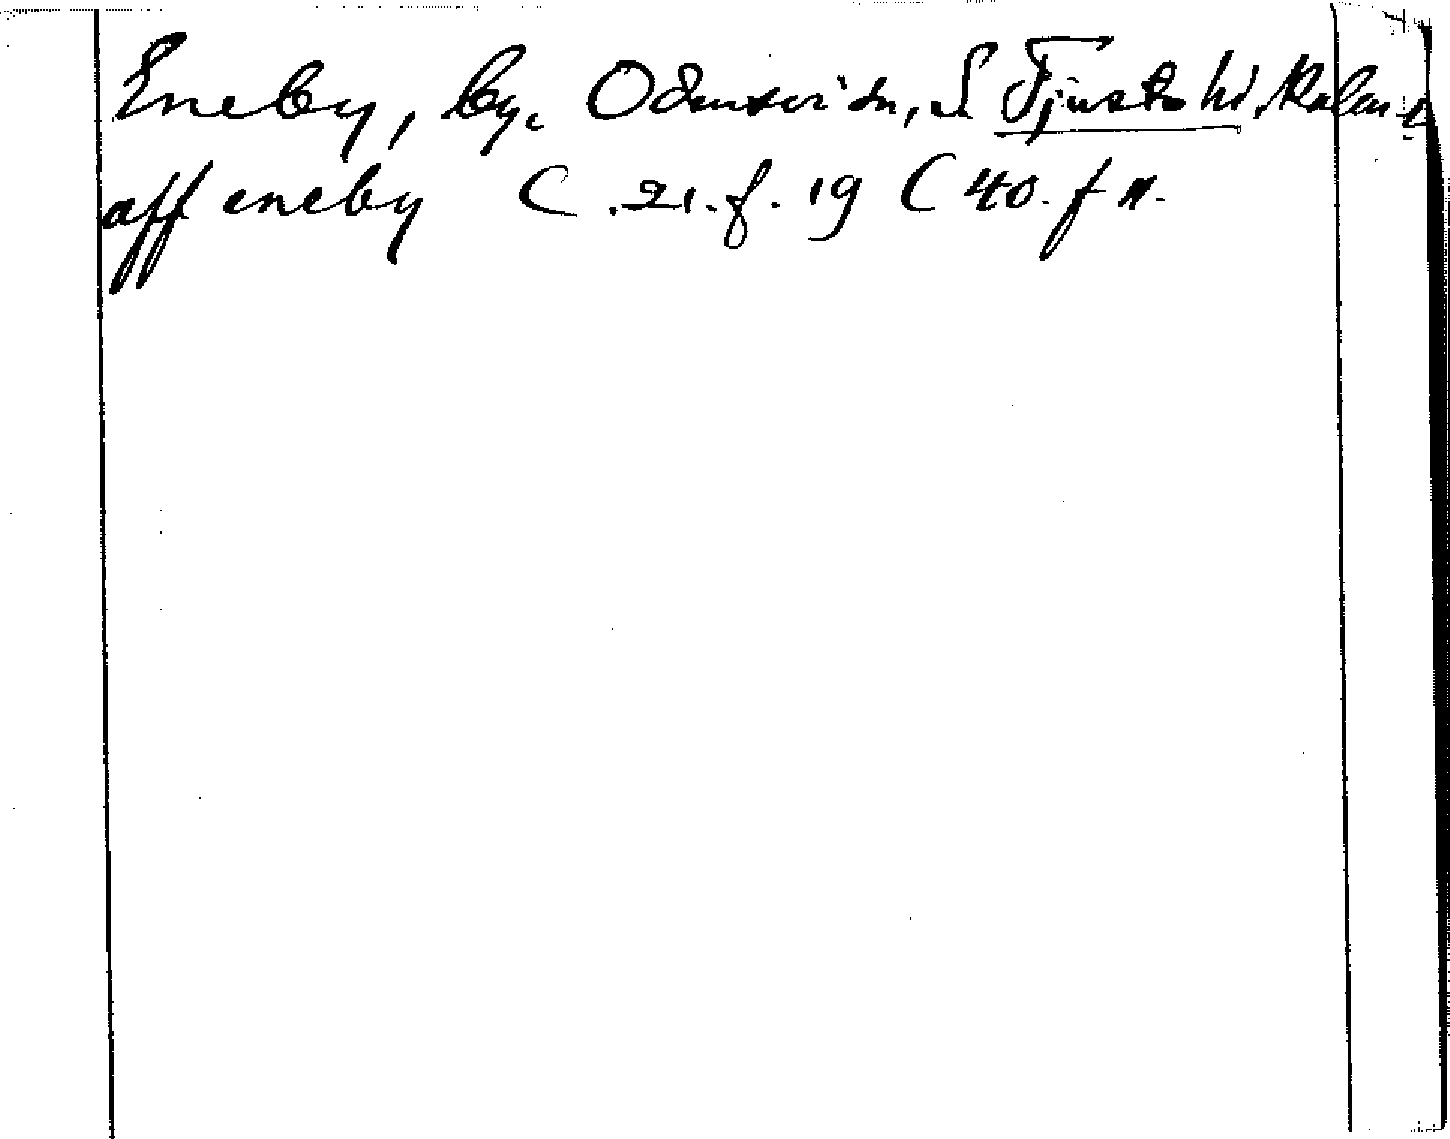 Eneby, by. Odensvi dn, S Tjusts hd, Kalm l
aff eneby C. 21. f. 19 C 40. f 11.